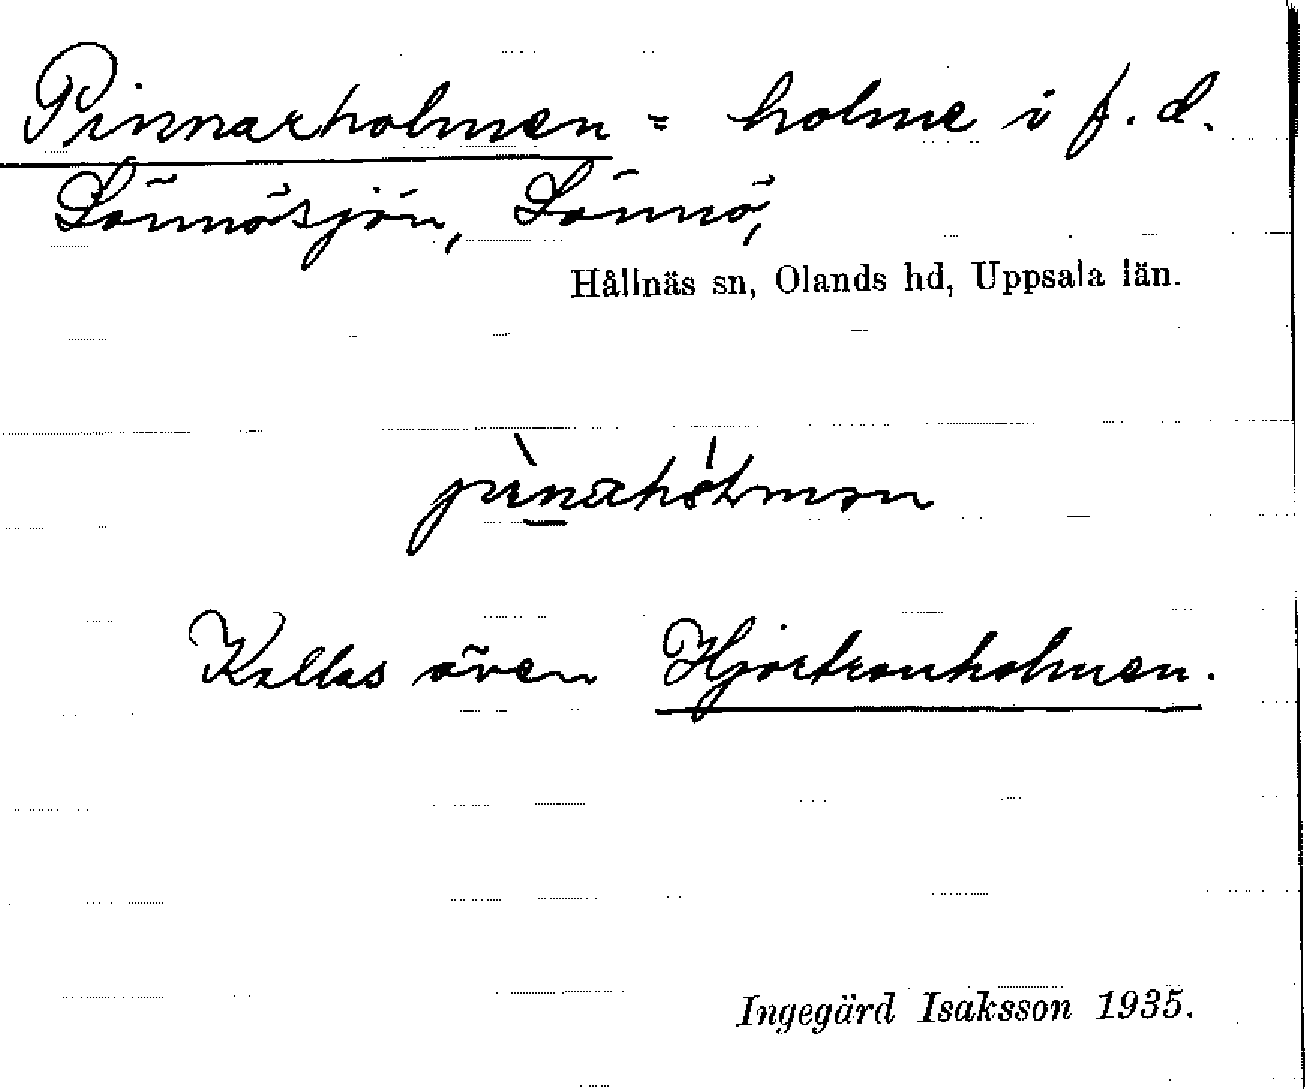 Pinnarholmen = holme i f. d.
Lönnösjön, Lönnö,
Hållnäs sn, Olands hd, Uppsala län.
Kallas även Hjortronholmen.
Ingegärd Isaksson 1935.